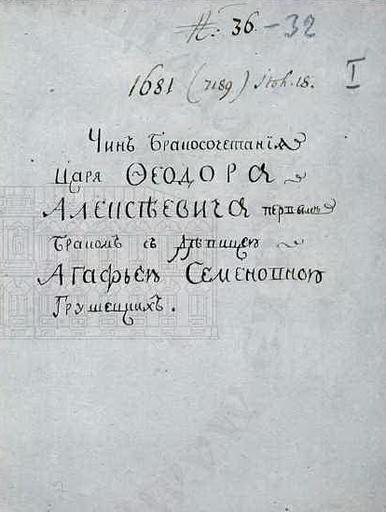 №. 36.–32
I
1681 (7189) Iюл. 18.
Чинъ Бракосочетанїя
Царя ѲЕОДОРА
АЛЕѮѢЕВИЧА первымъ
Бракомъ съ Дѣвицею
АГАФЬЕЮ СЕМЕНОВНОЮ
Грушецкихъ.